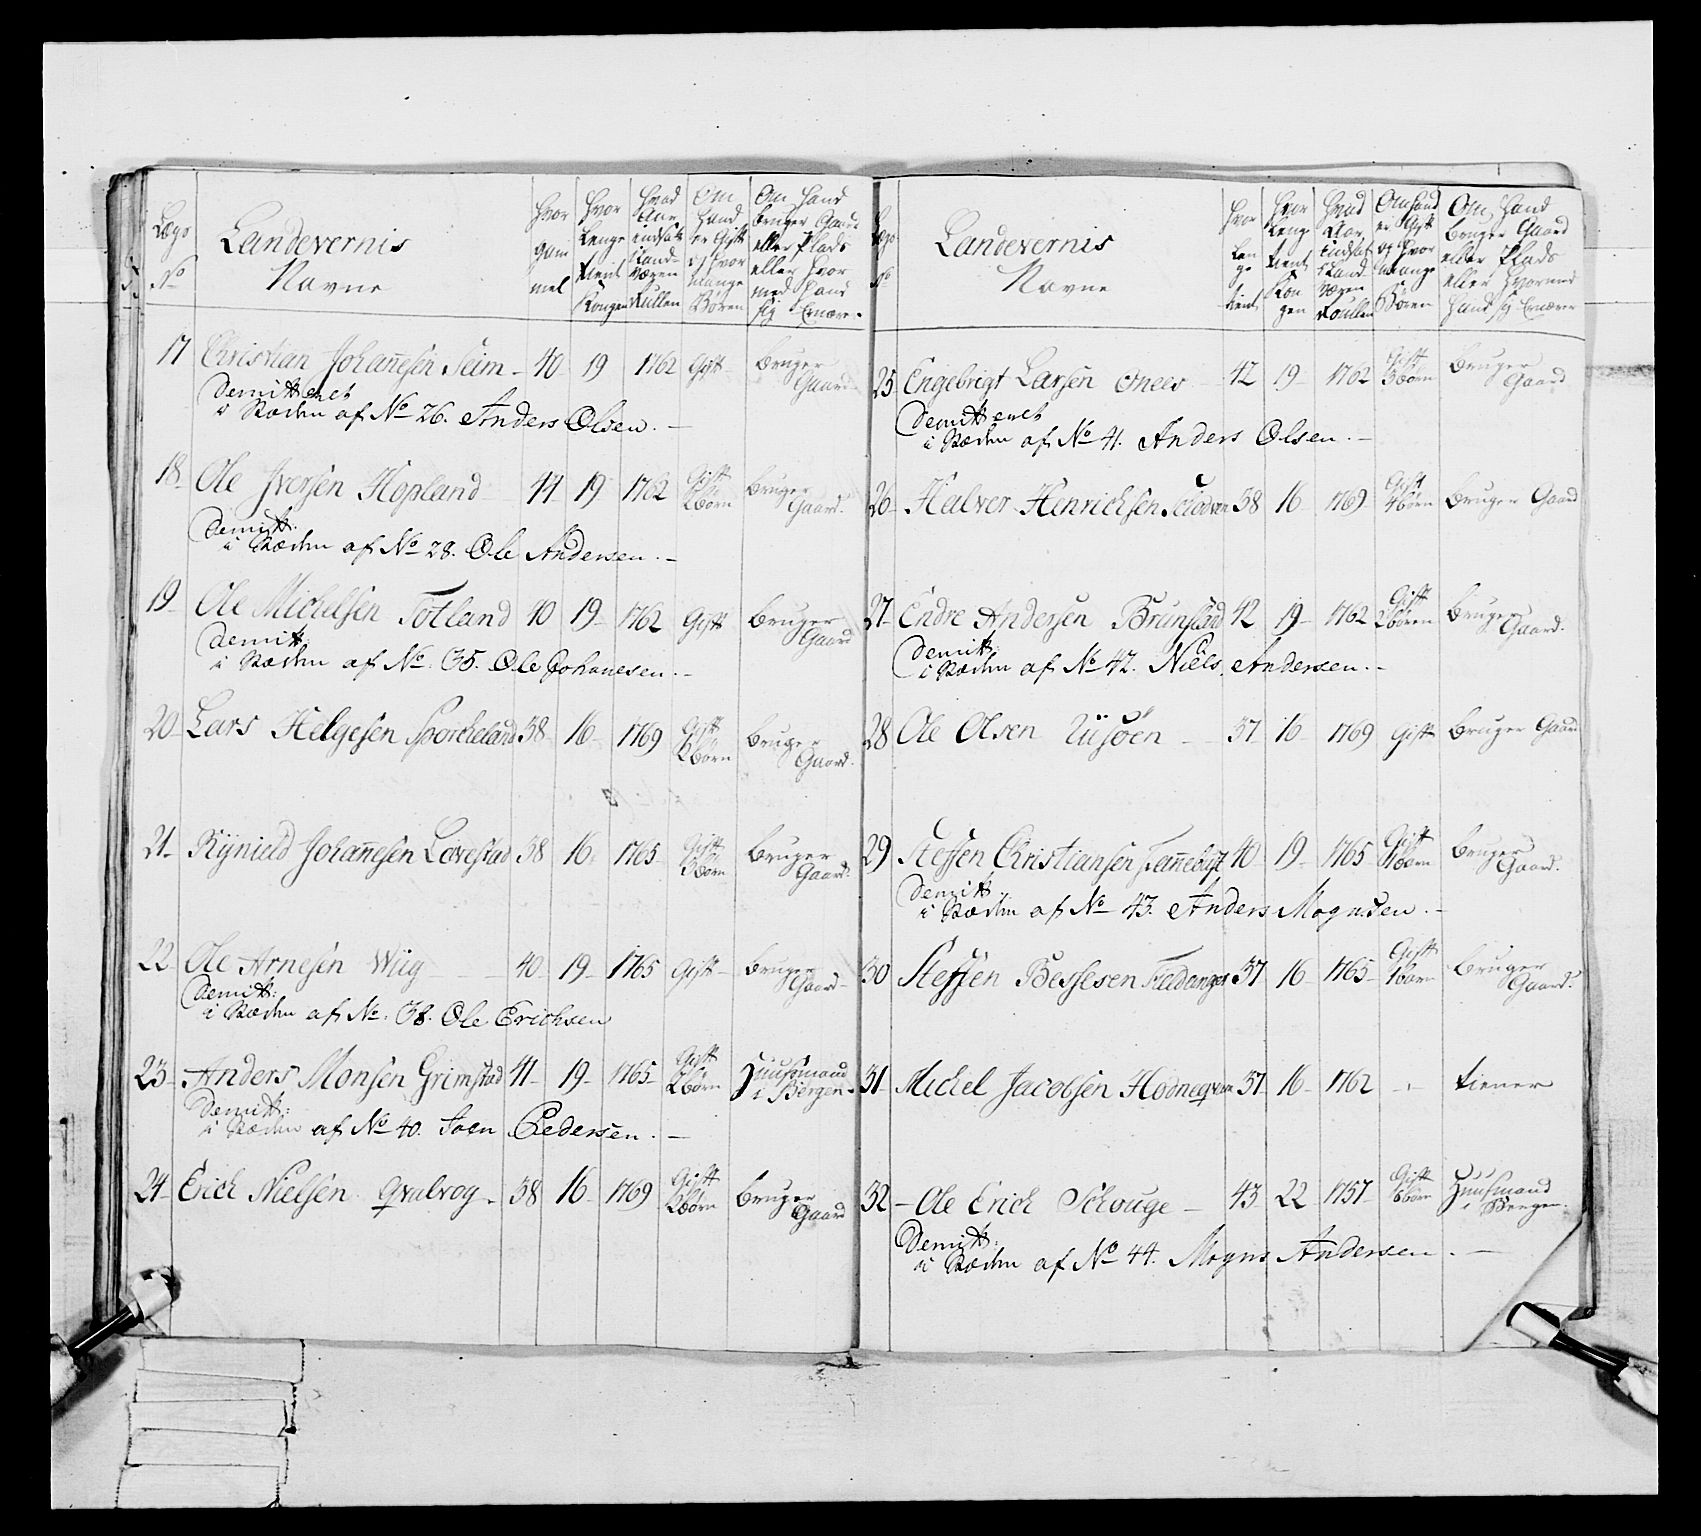 Lægs No
Landevernis Navne
Hvor gam mel
Hvor Lenge tient Kongen
Hvad Aar indsatt Land-Væren Rullen
Om Hand er Gift og Hvor mange Børen
Om Hand bruger Gaard eller Plads eller Hvor med Hand sig Ernærer
17 Christian Johanesen Seim - 40 19 1762 Gift - bruger Gaard
Demitteret
i Stæden af No 26. Anders Olsen. -
18 Ole Iversen Hopland 44 19 1762 Gift 2 børn bruger Gaard.
Demitt:
i Stæden af No 28. Ole Andersen. -
19 Ole Michelsen Totland 40 19 1762 Gift bruger Gaard
Demitt:
i Stæden af No. 35. Ole Johanesen. -
20 Lars Helgesen 38 16 1769 Gift 2 børn bruger Gaard.
21 Johanesen Lovestad 38 16 1765 Gift børn bruger Gaard.
22 Ole Arnesen Wiig - 40 19 1765 Gift - bruger Gaard
Demitt:
i Stæden af No. 38. Ole Erichsen
23 Anders Monsen Grimstad 41 19 1765 Gift 2 børn Huusmand i Bergen
Demitt:
i Stæden af No 40. Joen Pedersen. -
24 Erich Nielsen Qvalvog - 38 16 1769 Gift 2 børn bruger Gaard
Lægs No
Landevernis Navne
Hvor Len ge tient
Hvor Lenge tient Kon gen
Hvad Aar indsat Land Væren Roullen
Om Hand er Gift og Hvor mange Børen
Om Hand bruger Gaard eller Plads eller Hvormed Hand sig Ernærer
25 Engebrigt Larsen 42 19 1762 Gift 3 børn bruger Gaard
Demitteret
i Stæden af No 41. Anders Olsen. -
26 Halver Henrichsen 38 16 1769 Gift 4 børn bruger Gaard
27 Endre Andersen 42 19 1762 Gift 2 børn bruger Gaard.
Demitt:
i Stæden af No 42. Niels Andersen. -
28 Ole Olsen - 37 16 1769 Gift bruger Gaard
29 Steffen Christiansen 40 19 1765 Gift børn bruger Gaard.
Demitt.
i Stæden af No 43. Anders Mognsen. -
30 Steffen 37 16 1765 Gift 1 barn bruger Gaard.
31 Michel Jacobsen 37 16 1762 tiener
32 - Ole Erich Schouge - 43 22 1757 Gift børn Huusmand i Bergen.
Demitt:
i Stæden af No 44. Mogns Andersen. -